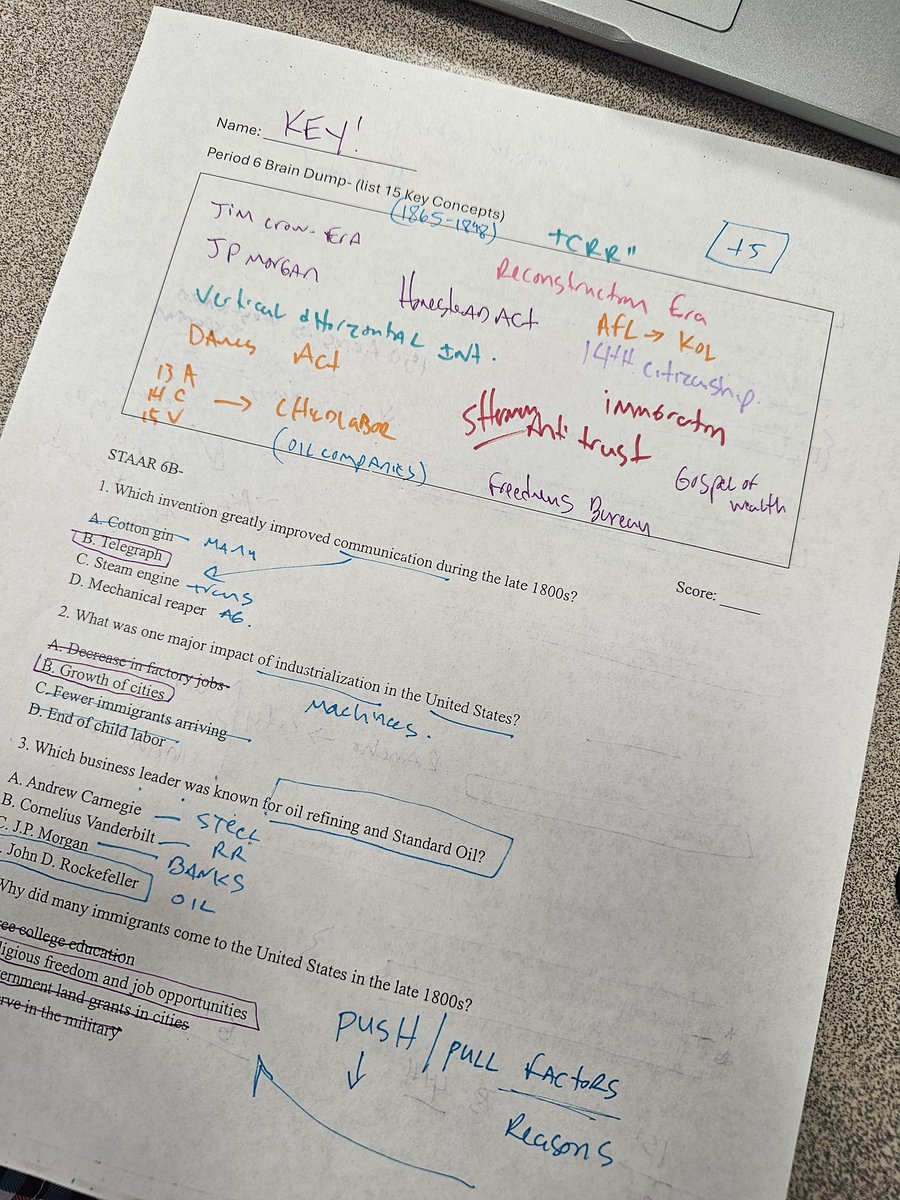 Name: KEY!
Period 6 Brain Dump- (list 15 Key Concepts)
(1865-1898)
TCRR"
+5
Jim Crow-ERA
Reconstruction Era
JP MORGAN
HomesteAD ACT
AFL → KOL
Vertical & HorizontAL INT.
14TH Citizenship.
DAwes Act
13 A
14 C
15 V
→ CHILDLABOR
(OIL COMPANIES)
SHerman Anti trust
immigration
Freedmens Bureau
Gospel of wealth
STAAR 6B-
Score:
1. Which invention greatly improved communication during the late 1800s?
A. Cotton gin
B. Telegraph
C. Steam engine trans
D. Mechanical reaper AG.
2. What was one major impact of industrialization in the United States?
A. Decrease in factory jobs
B. Growth of cities
C. Fewer immigrants arriving
Machines.
D. End of child labor
3. Which business leader was known for oil refining and Standard Oil?
A. Andrew Carnegie — STEEL
B. Cornelius Vanderbilt — RR
C. J.P. Morgan — BANKS
John D. Rockefeller OIL
Why did many immigrants come to the United States in the late 1800s?
college education
freedom and job opportunities
land grants in cities
in the military
PUSH / PULL FACTORS
Reasons